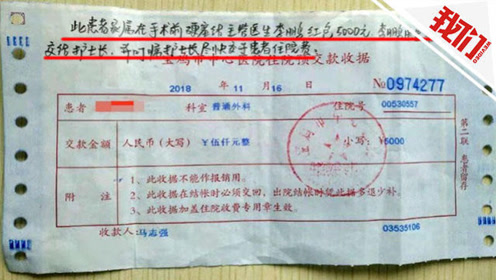 我们
此患者家属在手术前硬塞给主管医生李鹏红包5000元,李鹏
交给护士长,并叮嘱护士长尽快交于患者住院费。
宝鸡市中心医院住院预交款收据
2018 11 16 No 0974277
患者 科室 普通外科 住院号 00530557
交款金额 人民币(大写) ¥伍仟元整 小写: ¥5000
附注
1、此收据不能作报销用。
2、此收据在结帐时必须交回,出院结帐时凭此据多退少补。
3、此收据加盖住院收费专用章生效。
收款人: 马志强 03535106
第二联 患者留存